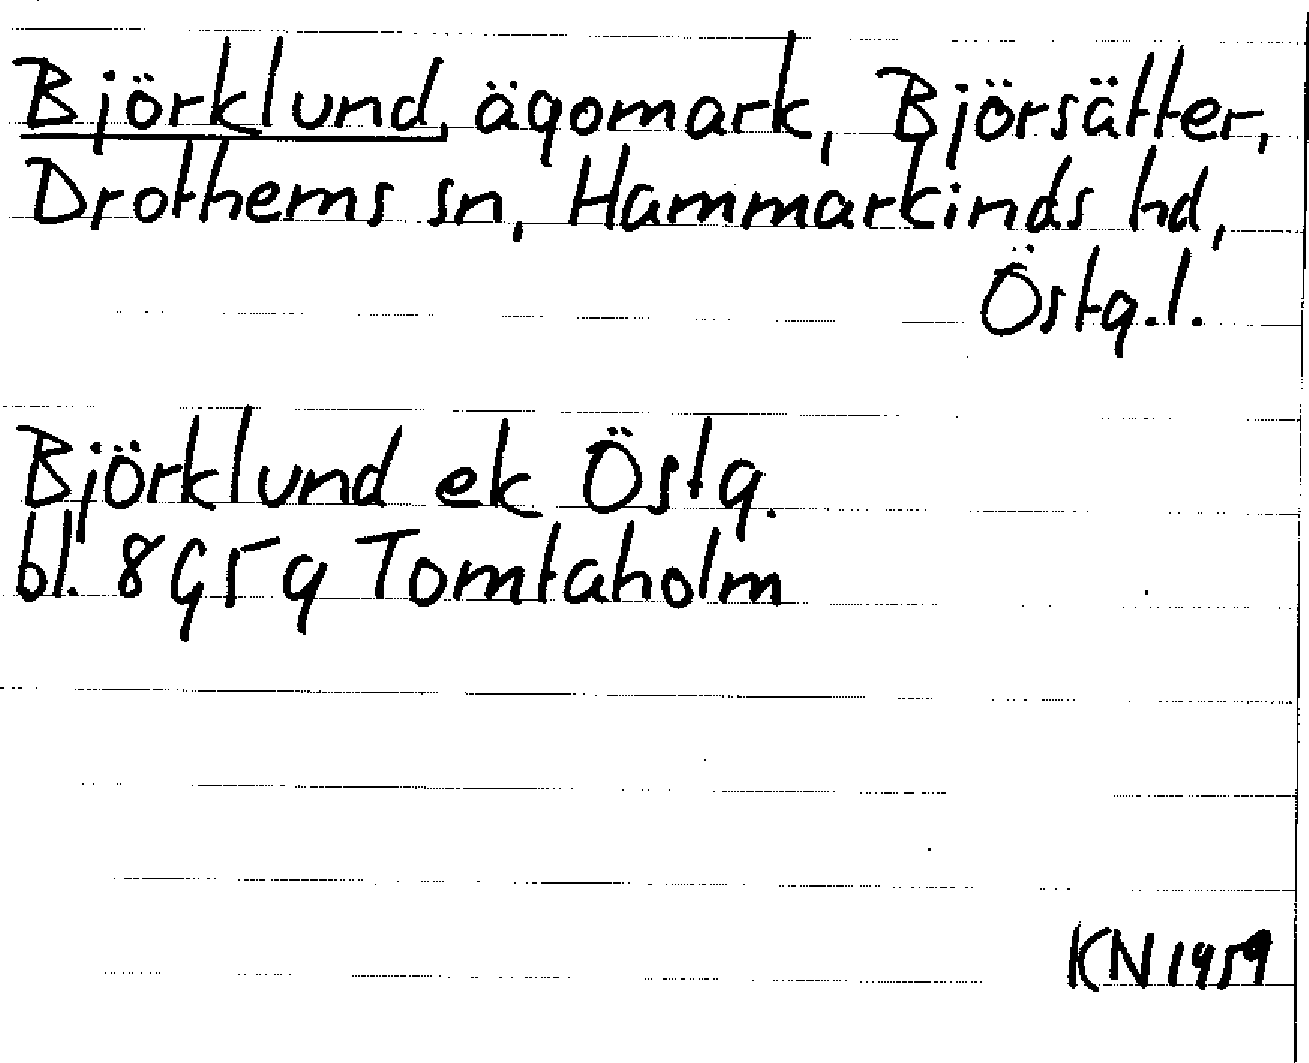 Björklund, ägomark, Björsätter,
Drothems sn, Hammarkinds hd,
Östg.l.
Björklund ek Östg.
bl. 8G5g Tomtaholm
KN 1959